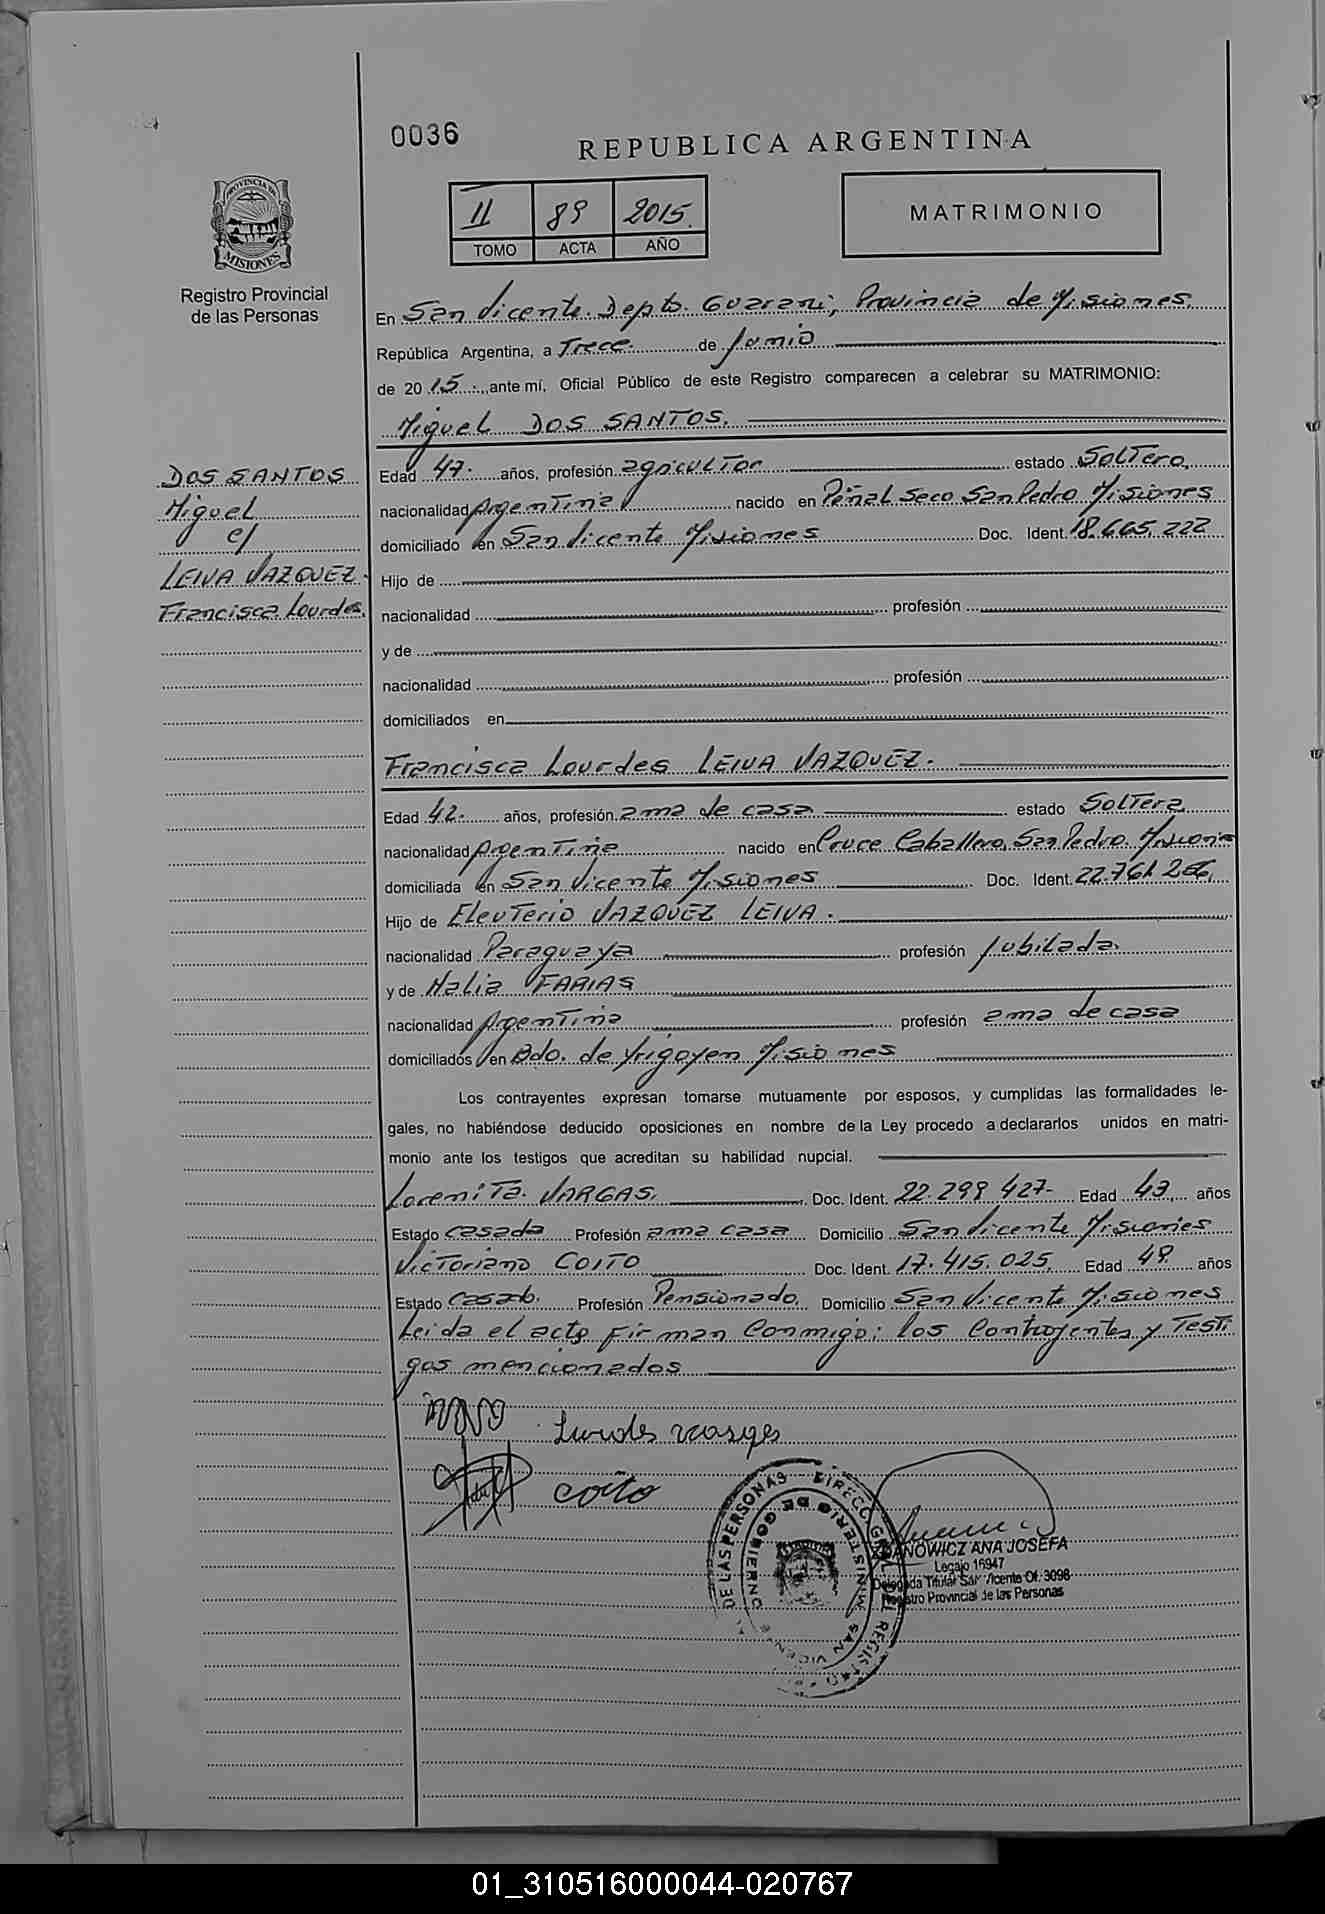 0036
REPUBLICA ARGENTINA
II 89 2015.
TOMO ACTA AÑO
MATRIMONIO
PROVINCIA DE
MISIONES
Registro Provincial
de las Personas
En San Vicente. Depto. Guarani, Provincia de Misiones.
República Argentina, a Trece. de Junio
de 2015 ante mí, Oficial Público de este Registro comparecen a celebrar su MATRIMONIO:
Miguel DOS SANTOS.
DOS SANTOS
Miguel
c/
LEIVA VAZQUEZ.
Francisca Lourdes.
Edad 47. años, profesión agricultor estado Soltero.
nacionalidad Argentina nacido en Peñal Seco San Pedro Misiones
domiciliado en San Vicente Misiones Doc. Ident. 18.665.222
Hijo de
nacionalidad profesión
y de
nacionalidad profesión
domiciliados en
Francisca Lourdes LEIVA VAZQUEZ.
Edad 42. años, profesión ama de casa estado Soltera
nacionalidad Argentina nacido en Cruce Caballero, San Pedro. Misiones
domiciliada en San Vicente Misiones Doc. Ident. 22.761.256
Hijo de Eleuterio VAZQUEZ LEIVA.
nacionalidad Paraguaya profesión Jubilada.
y de Nalia FARIAS
nacionalidad Argentina profesión ama de casa
domiciliados en Bdo. de Yrigoyen Misiones
Los contrayentes expresan tomarse mutuamente por esposos, y cumplidas las formalidades le-
gales, no habiéndose deducido oposiciones en nombre de la Ley procedo a declararlos unidos en matri-
monio ante los testigos que acreditan su habilidad nupcial.
Lorenita VARGAS. Doc. Ident. 22.299.427- Edad 43 años
Estado Casada Profesión ama casa Domicilio San Vicente Misiones
Victoriano COITO Doc. Ident. 17.415.025. Edad 49. años
Estado Casado. Profesión Pensionado. Domicilio San Vicente Misiones
Leida el acta firman conmigo: los contrayentes y Testi
gos mencionados
Coito
DIRECC. GRAL. DEL REGISTRO DE LAS PERSONAS
MINISTERIO DE GOBIERNO
SAN VICENTE
ANOWICZ ANA JOSEFA
Legajo 16947
Delegada Titular San Vicente Of. 3098
Registro Provincial de las Personas
01_310516000044-020767